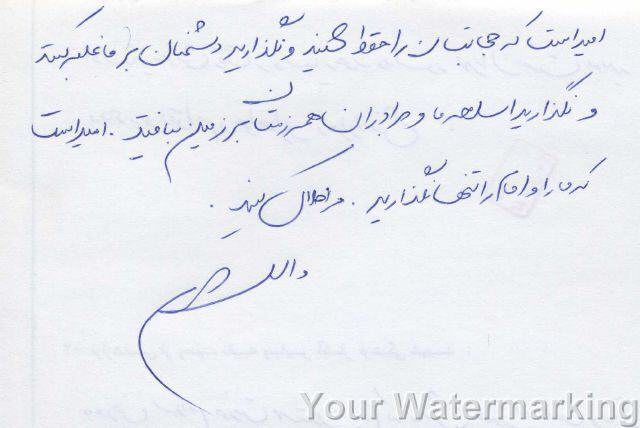 امید است که حجابتان را حفظ کنید و نگذارید دشمنان بر ما غلبه کنند
و نگذارید اسلحه ما و برادران همرزمتان بر زمین بیافتد. امید است
که ما را و امام را تنها نگذارید. مرا حلال کنید.
والسلام
Your Watermarking